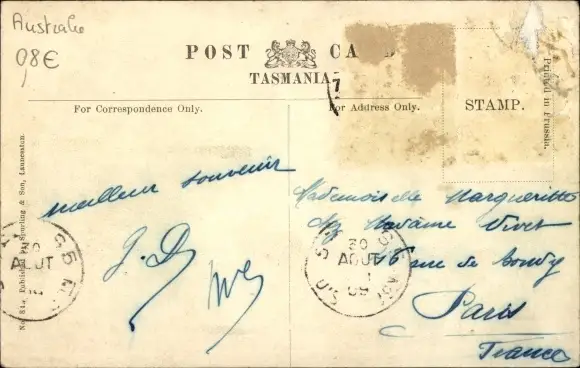 Australie
08€
POST CARD
TASMANIA
For Correspondence Only.
For Address Only.
STAMP.
Printed in Prussia.
No. 84a. Published by Spurling & Son, Launceston.
meilleur souvenir
J. D
Mademoiselle Marguerite
chez Madame Vivet
16 rue de Condy
Paris
France
30
AOUT
30
AOUT